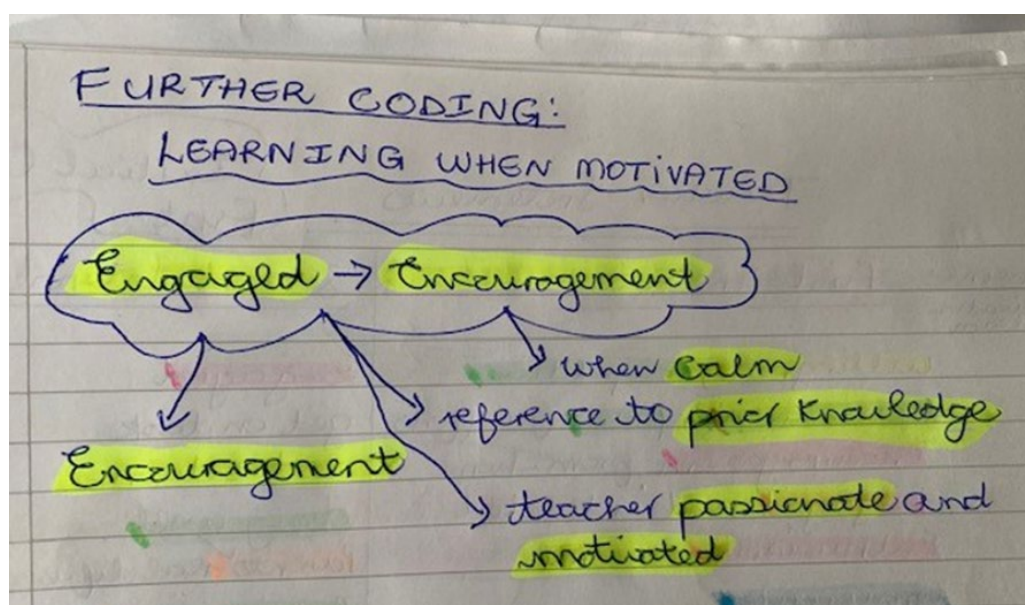 FURTHER CODING:
LEARNING WHEN MOTIVATED
Engaged → Encouragement
when calm
reference to prior knowledge
Encouragement
teacher passionate and
motivated